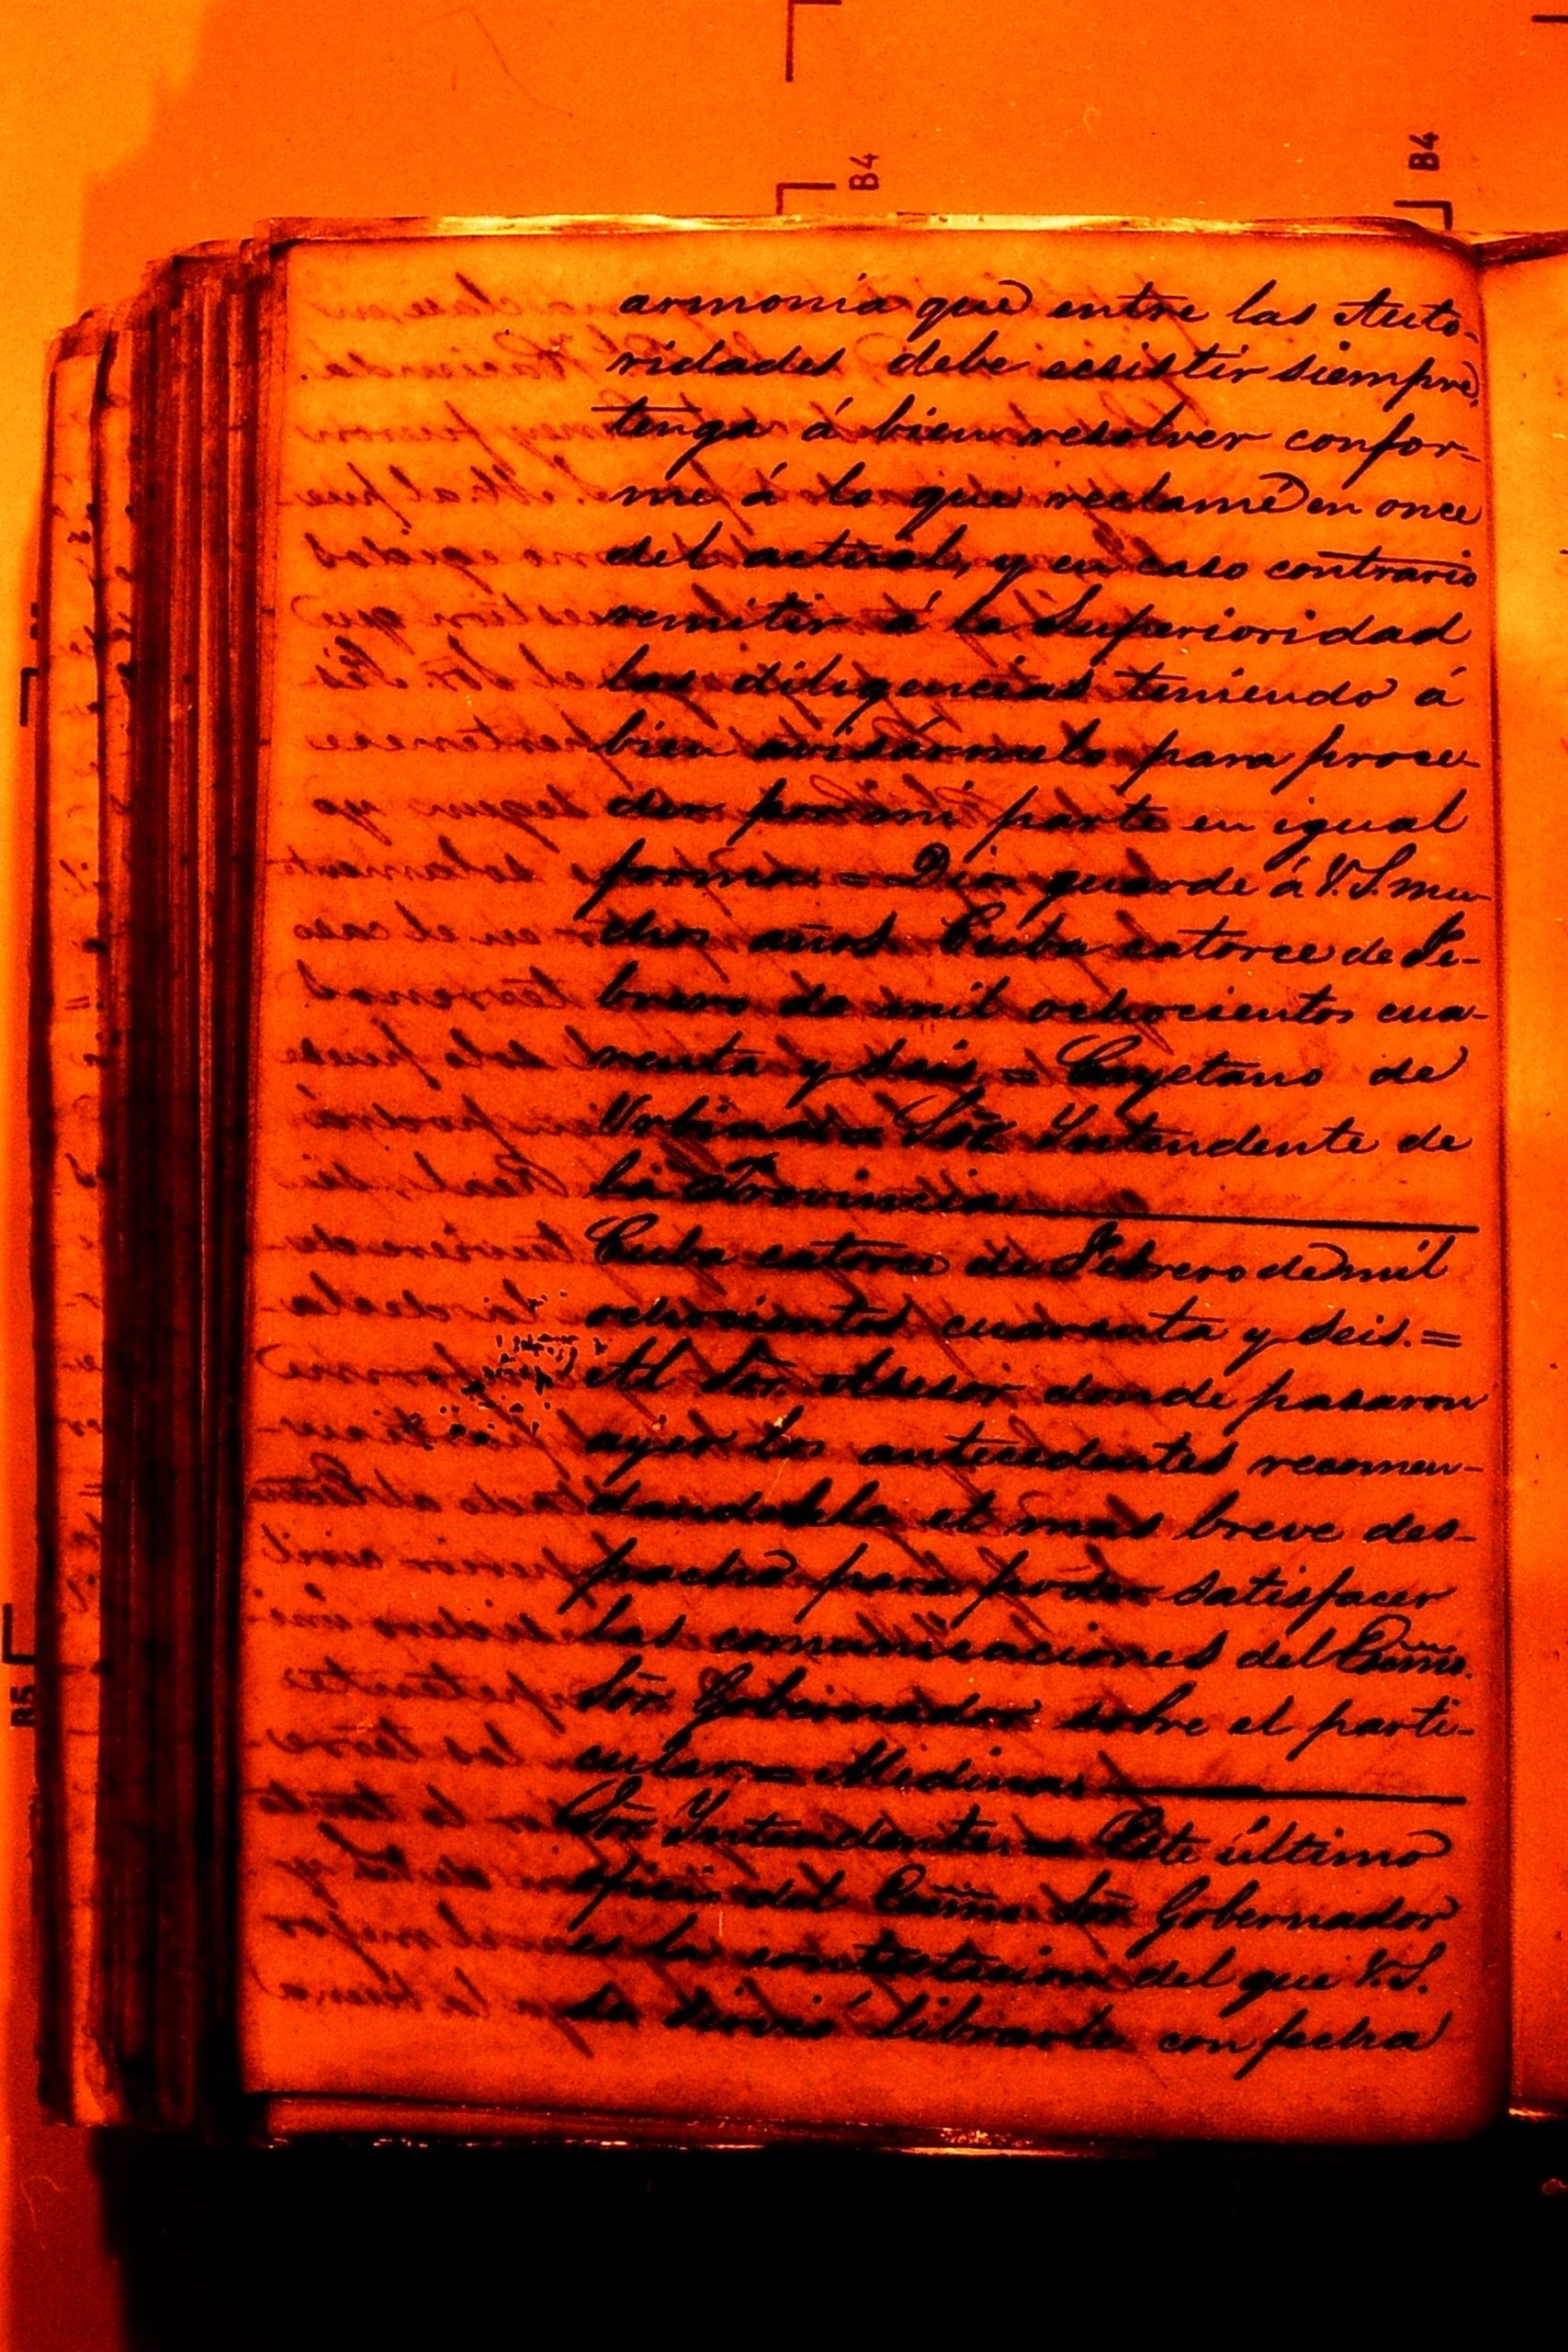 B4
B4
armonía que entre las Auto-
ridades debe ecsistir siempre,
tenga á bien resolver confor-
me á lo que reclamé en once
del actual, y en caso contrario
remitir á la Superioridad
las diligencias teniendo á
bien avisármelo para proce-
der por mi parte en igual
forma. = Dios guarde á V.S. mu-
chos años Cuba catorce de Fe-
brero de mil ochocientos cua-
renta y seis = Cayetano de
Urbina = Sõr Intendente de
la Provincia
Cuba catorce de Febrero de mil
ochocientos cuarenta y seis. =
Al Sõr. Asesor donde pasaron
ayer los antecedentes recomen-
dandole el mas breve des-
pacho para poder satisfacer
las comunicaciones del Ecsmo.
Sõr. Gobernador sobre el parti-
cular. = Medina
Sõr Intendente. = Este último
oficio del Ecsmo. Sõr. Gobernador
es la contestacion del que V.S.
se sirvió librarle con fecha
B5